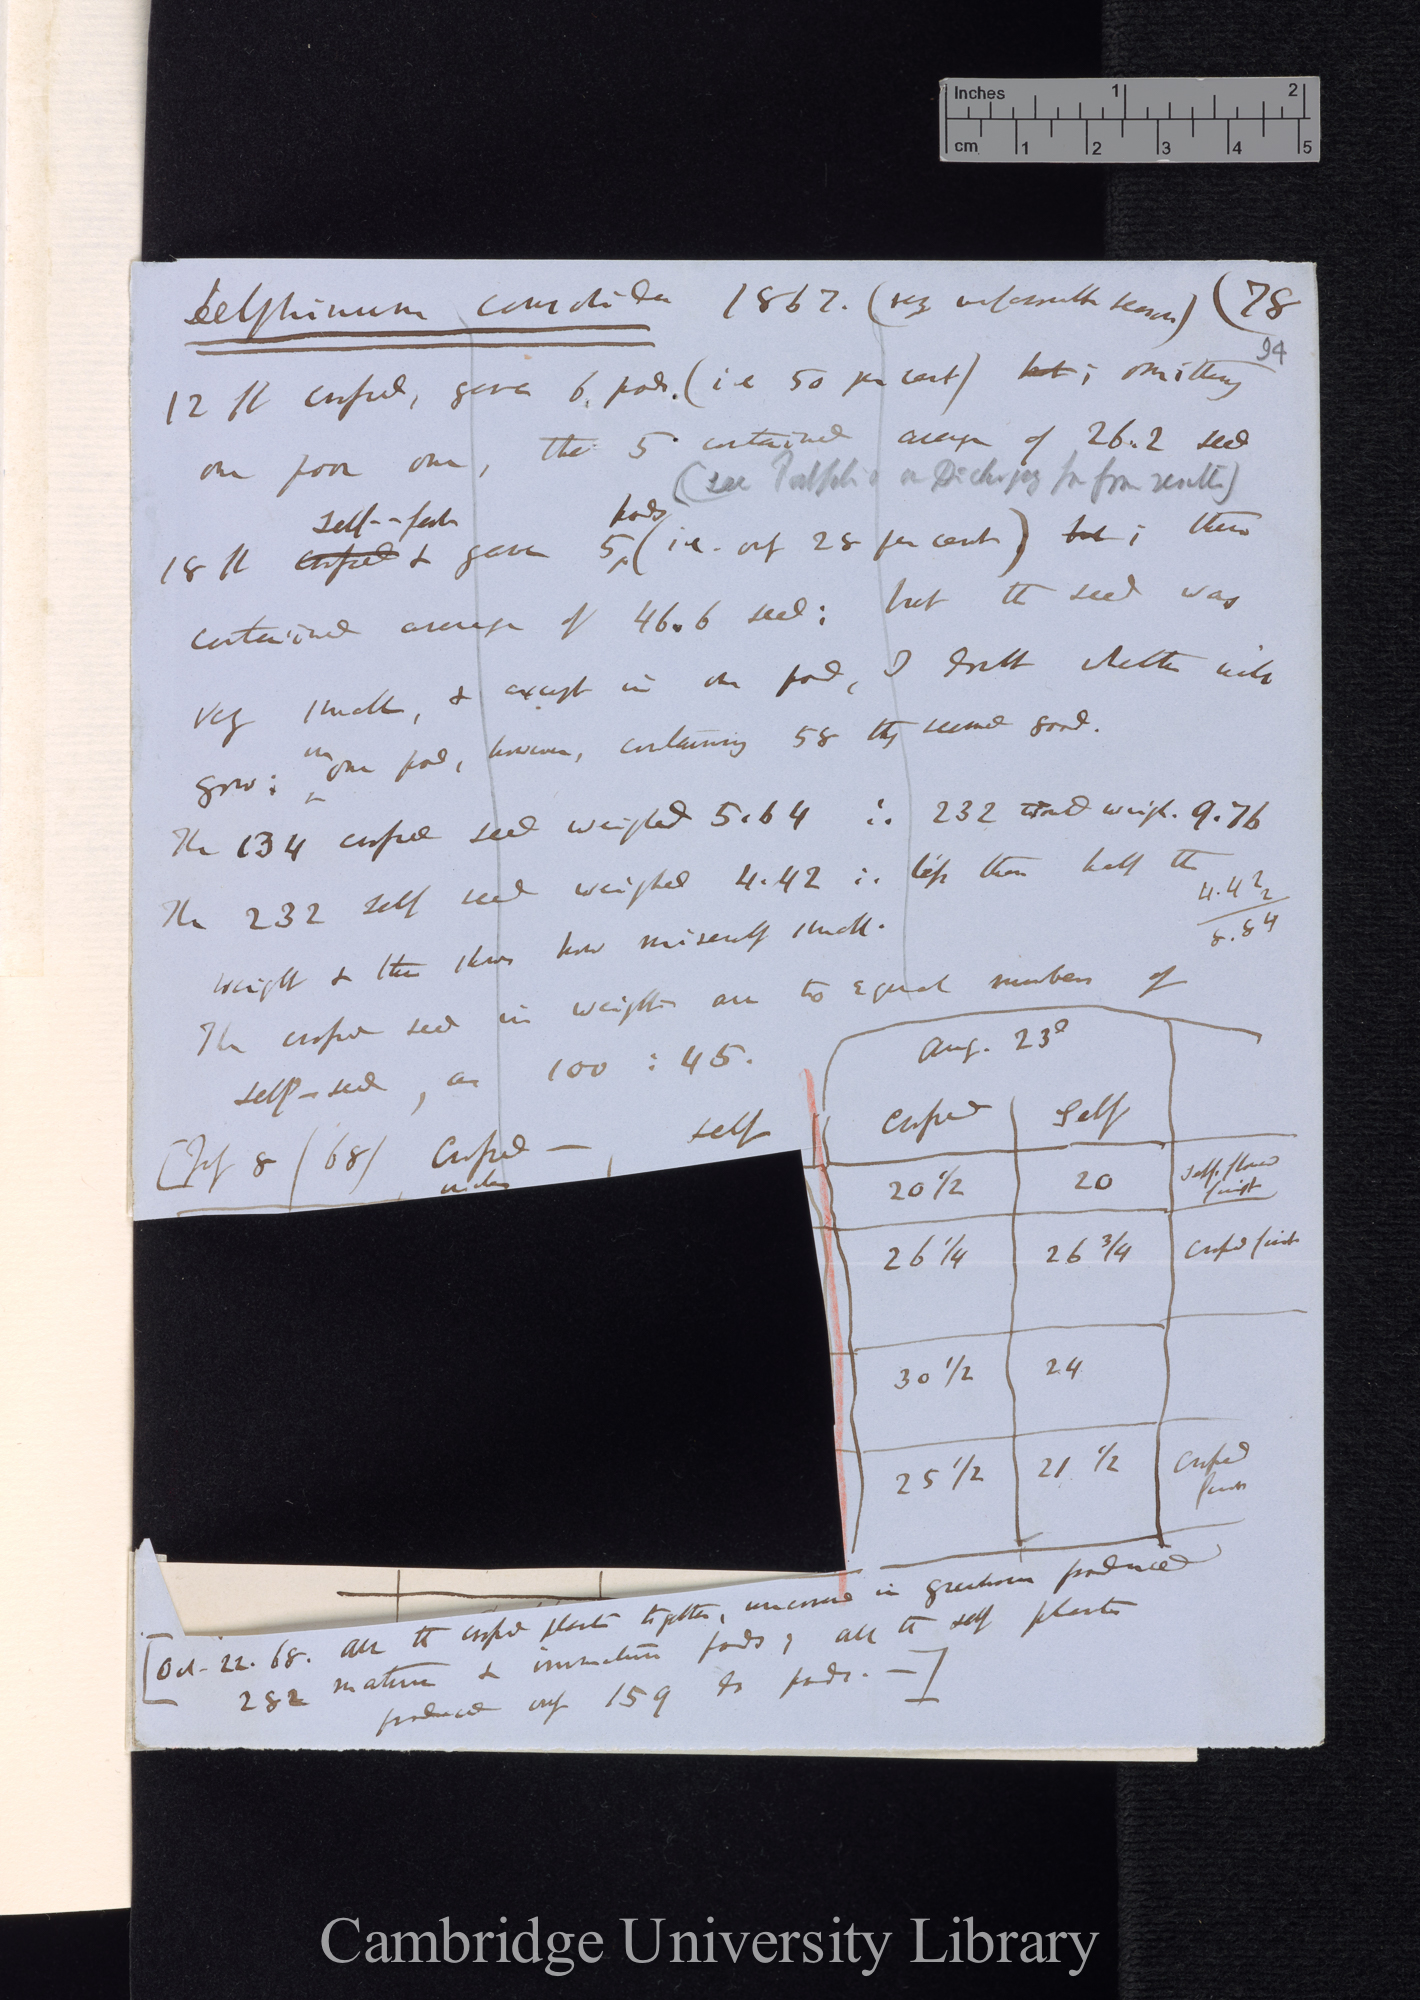 Inches 1 2
cm 1 2 3 4 5
Delphinium consolida 1867. (very unfavourable season) (78
94
12 fl crossed, gave 6 pods. (i.e 50 per cent) but; omitting
one poor one, the 5 contained average of 26.2 seed
(see Portfolio on Dichogamy for from results)
Self-fert pods
18 fl crossed & gave 5 (i.e. only 28 per cent) but; these
contained average of 46.6 seed: but the seed was
very small, & except in one pod, I doubt whether will
grow: in one pod, however, containing 58 they seemed good.
The 134 crossed seed weighed 5.64 ∴ 232 would weigh. 9.76
The 232 self seed weighed 4.42 ∴ less than half the
weight & this shows how miserably small.
4.42
2
8.84
The crossed seed in weight are to equal numbers of
self-seed, as 100 : 45.
[July 8 /68/ Crossed — self
inches
Aug. 23d
Crossed Self
20 1/2 20 Self. flowered first
26 1/4 26 3/4 Crossed first
30 1/2 24
25 1/2 21 1/2 Crossed first
[Oct- 22. 68. all the crossed plants together, uncovered in greenhouse produced
282 mature & immature pods; all the self plants
produced only 159 do pods. —]
Cambridge University Library